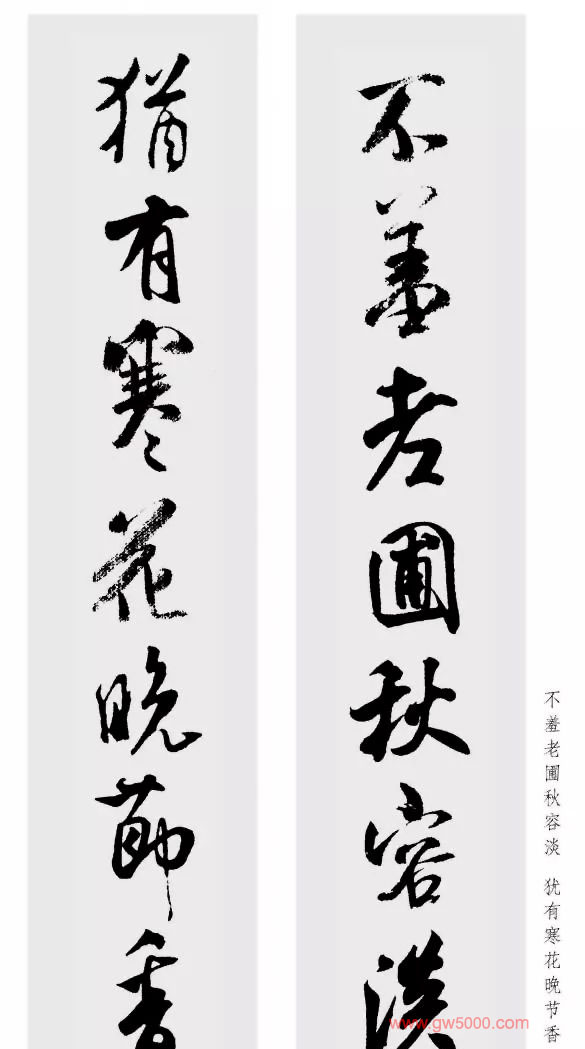 不羞老圃秋容淡
猶有寒花晚節香
不羞老圃秋容淡 犹有寒花晚节香
www.gw5000.com